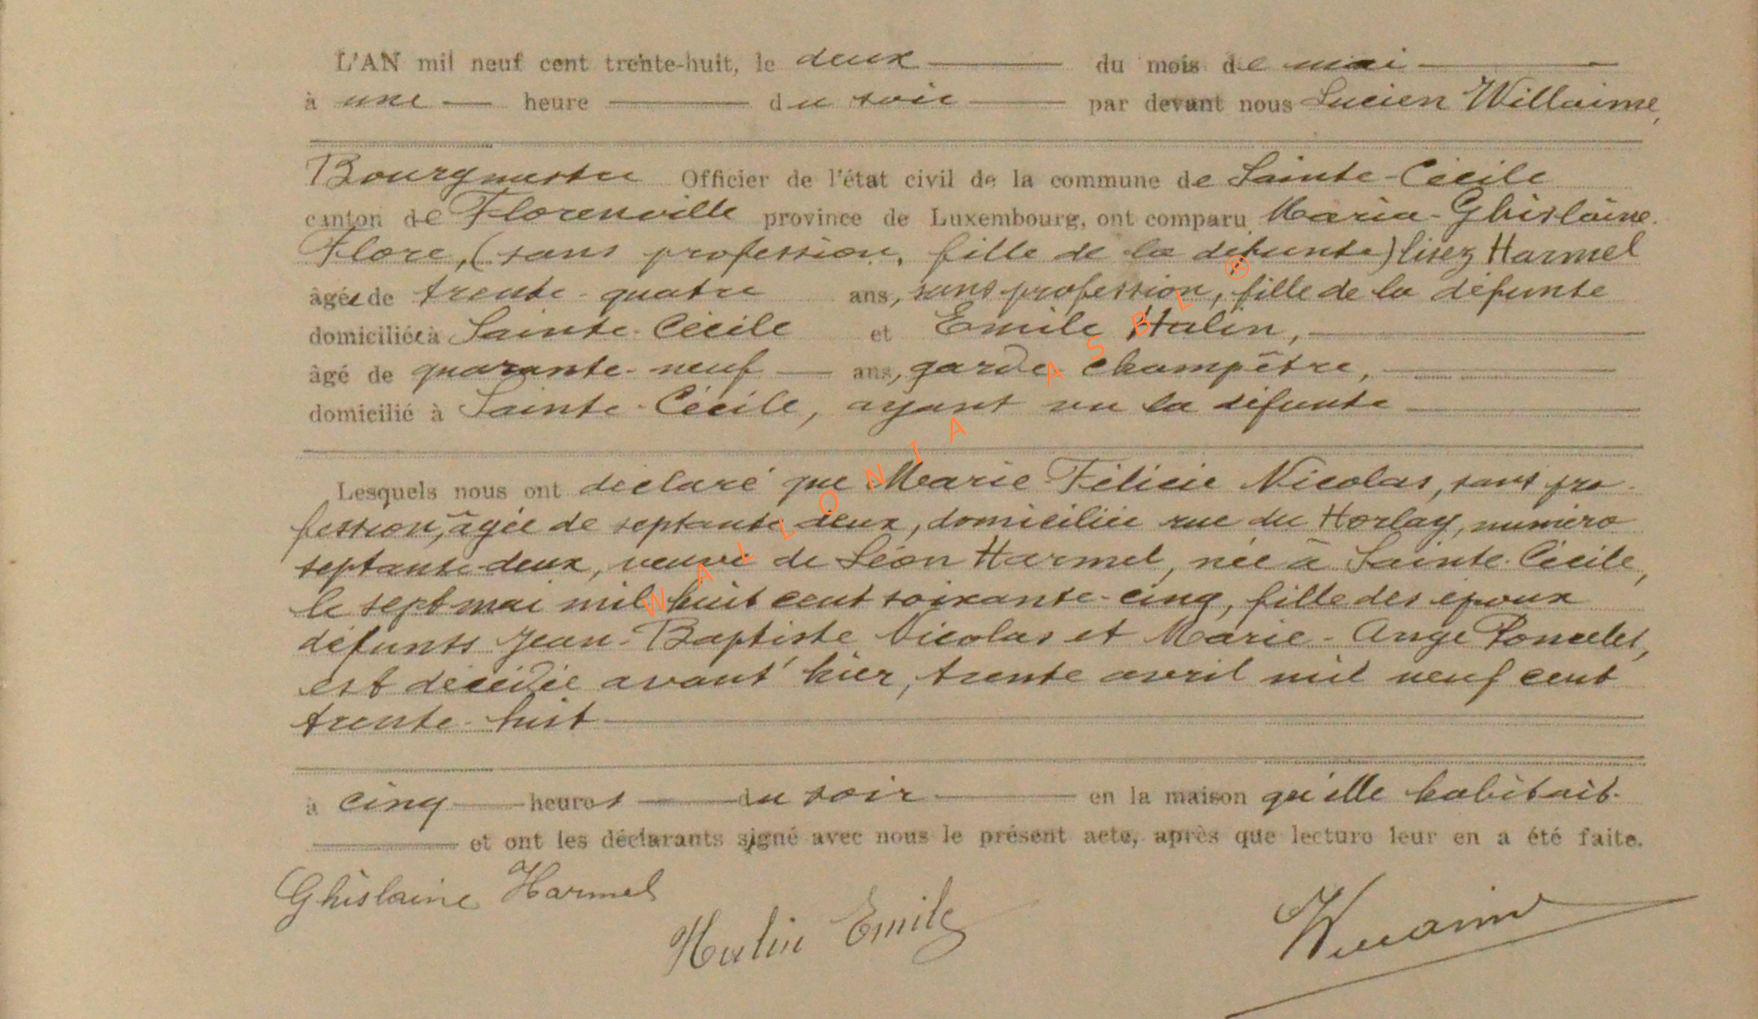 L'AN mil neuf cent trente-huit, le deux du mois de mai
à une heure du soir par devant nous Lucien Willaime,
Bourgmestre Officier de l'état civil de la commune de Sainte-Cécile
canton de Florenville province de Luxembourg, ont comparu Maria-Ghislaine
Flore, (sans profession, fille de la défunte) lisez Harmel
âgée de trente-quatre ans, sans profession, fille de la défunte
domiciliée à Sainte-Cécile et Emile Halin,
âgé de quarante-neuf ans, garde champêtre,
domicilié à Sainte-Cécile, ayant vu la défunte
Lesquels nous ont déclaré que Marie Félicie Nicolas, sans pro-
fession, âgée de septante deux, domiciliée rue du Horlay, numéro
septante-deux, veuve de Léon Harmel, née à Sainte-Cécile,
le sept mai mil huit cent soixante-cinq, fille des époux
défunts Jean-Baptiste Nicolas et Marie-Ange Poncelet,
est décédée avant'hier, trente avril mil neuf cent
trente-huit
à cinq heures du soir en la maison qu'elle habitait.
et ont les déclarants signé avec nous le présent acte, après que lecture leur en a été faite.
Ghislaine Harmel
Halin Emile
Willaime
WALLONIA ASBL ®